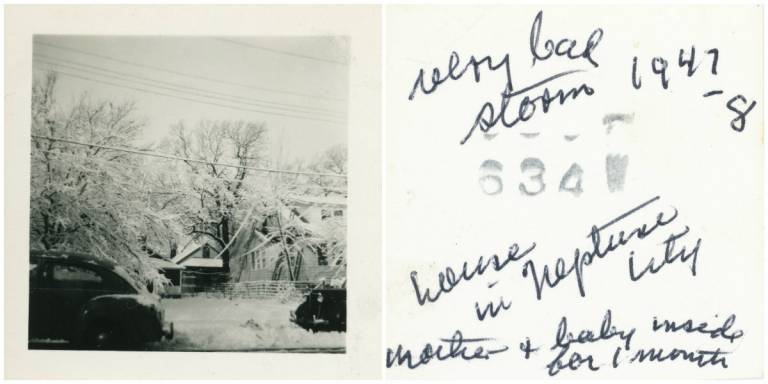 very bad
storm 1947
-8
634
house
in Neptune
City
mother & baby inside
for 1 month